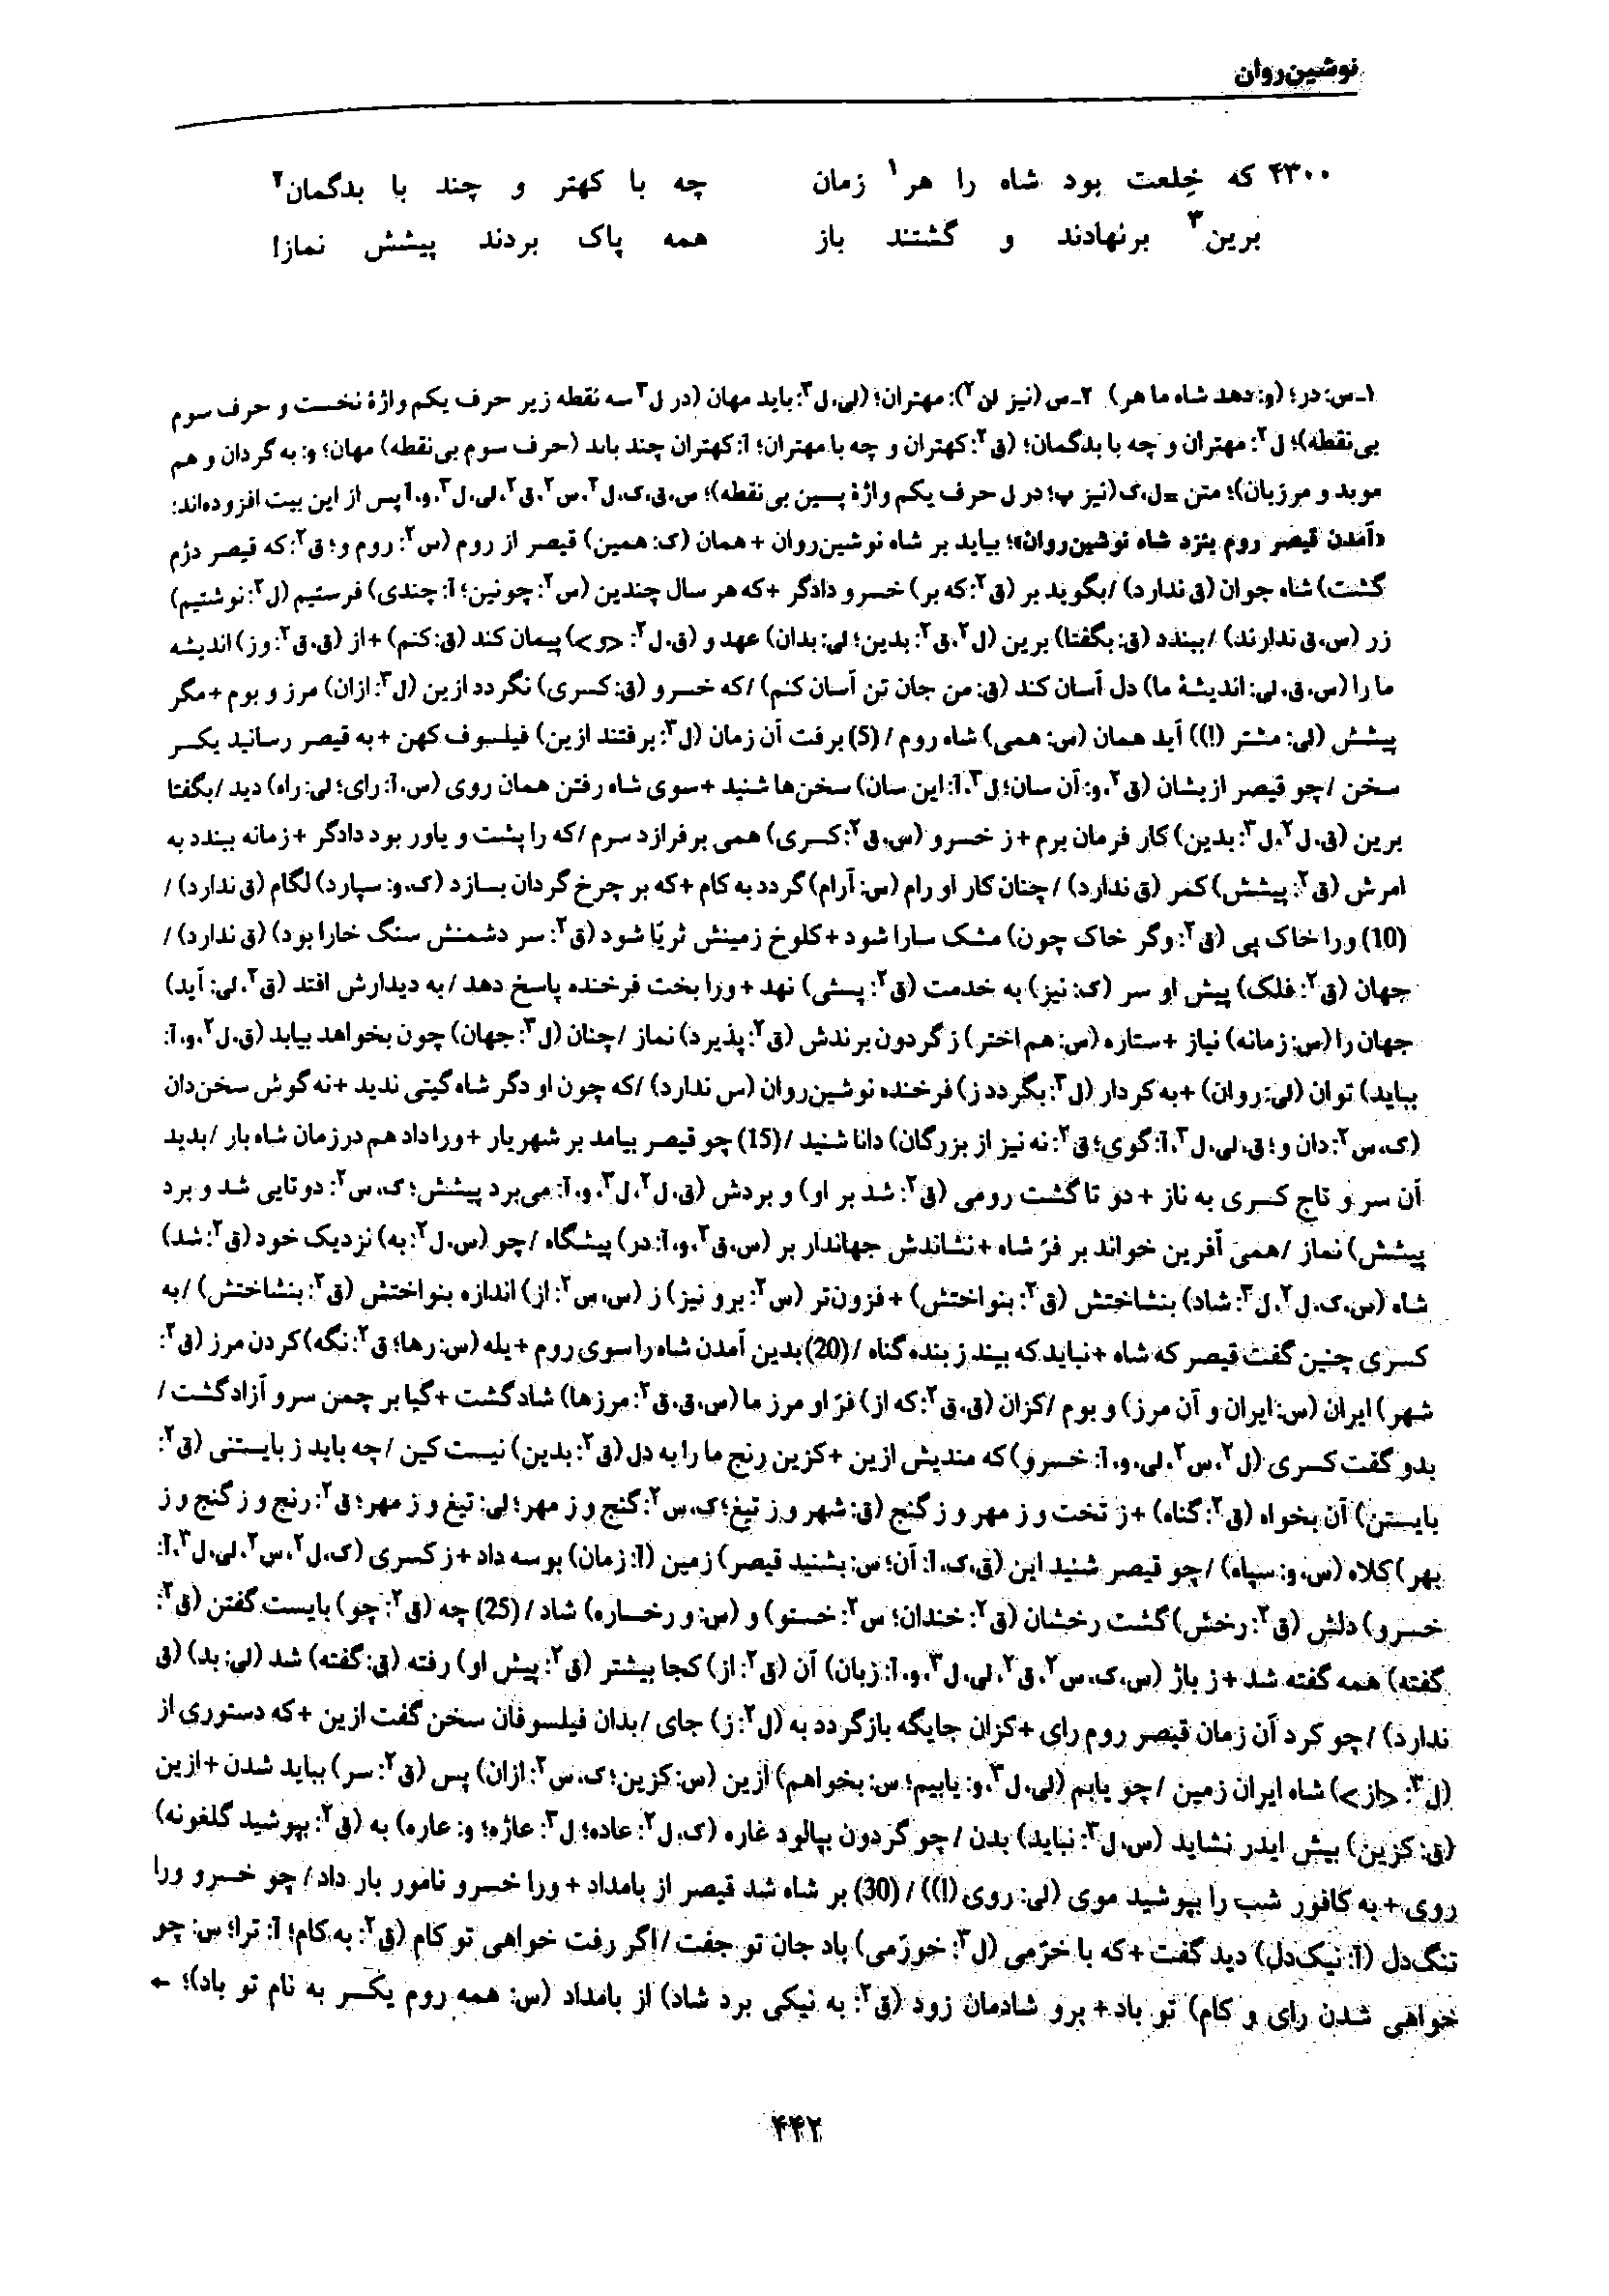 نوشین‌روان
۴۳۰۰ که خِلعت بود شاه را هر۱ زمان چه با کهتر و چند با بدگمان۲
برین۳ برنهادند و گشتند باز همه پاک بردند پیشش نماز!
۱ـ س: در؛ (و: دهد شاه ما هر) ۲ـ س (نیز لن۲): مهتران؛ (لی، ل۳: باید مهان (در ل۳ سه نقطه زیر حرف یکم واژهٔ نخست و حرف سوم
بی‌نقطه)؛ ل۲: مهتران و چه با بدگمان؛ (ق۲: کهتران و چه با مهتران؛ آ: کهتران چند باید (حرف سوم بی‌نقطه) مهان؛ و: به گردان و هم
موبد و مرزبان)؛ متن = ل، ک (نیز پ؛ در ل حرف یکم واژهٔ پسین بی‌نقطه)؛ س، ق، ک، ل۲، س۲، ق۲، لی، ل۳، و، آ پس از این بیت افزوده‌اند:
«آمدن قیصر روم بنزد شاه نوشین‌روان»؛ بیاید بر شاه نوشین‌روان + همان (ک: همین) قیصر از روم (س۲: روم و؛ ق۲: که قیصر دژم
گشت) شاه جوان (ق ندارد) / بگوید بر (ق۲: که بر) خسرو دادگر + که هر سال چندین (س۲: چونین؛ آ: چندی) فرستیم (ل۲: نوشتیم)
زر (س، ق ندارند) / ببندد (ق: بگفتا) برین (ل۲، ق۲: بدین؛ لی: بدان) عهد و (ق، ل۲: <و>) پیمان کند (ق: کنم) + از (ق، ق۲: وز) اندیشه
ما را (س، ق، لی: اندیشهٔ ما) دل آسان کند (ق: من جان تن آسان کنم) / که خسرو (ق: کسری) نگردد ازین (ل۳: ازان) مرز و بوم + مگر
پیشش (لی: مشتر (!)) آید همان (س: همی) شاه روم / (5) برفت آن زمان (ل۳: برفتند ازین) فیلسوف کهن + به قیصر رسانید یکسر
سخن / چو قیصر ازیشان (ق۲، و: آن سان؛ ل۳، آ: این سان) سخن‌ها شنید + سوی شاه رفتن همان روی (س، آ: رای؛ لی: راه) دید / بگفتا
برین (ق، ل۲، ل۳: بدین) کار فرمان برم + ز خسرو (س، ق۲: کسری) همی برفرازد سرم / که را پشت و یاور بود دادگر + زمانه ببندد به
امرش (ق۲: پیشش) کمر (ق ندارد) / چنان کار او رام (س: آرام) گردد به کام + که بر چرخ گردان بسازد (ک، و: سپارد) لگام (ق ندارد) /
(10) ورا خاک پی (ق۲: وگر خاک چون) مشک سارا شود + کلوخ زمینش ثریّا شود (ق۲: سر دشمنش سنگ خارا بود) (ق ندارد) /
جهان (ق۲: فلک) پیش او سر (ک: نیز) به خدمت (ق۲: پستی) نهد + ورا بخت فرخنده پاسخ دهد / به دیدارش افتد (ق۲، لی: آید)
جهان را (س: زمانه) نیاز + ستاره (س: هم اختر) ز گردون برندش (ق۲: پذیرد) نماز / چنان (ل۳: جهان) چون بخواهد بیابد (ق، ل۲، و، آ:
بیاید) توان (لی: روان) + به کردار (ل۳: بگردد ز) فرخنده نوشین‌روان (س ندارد) / که چون او دگر شاه گیتی ندید + نه گوش سخن‌دان
(ک، س۲: دان و؛ ق، لی، ل۳، آ: گوی؛ ق۲: نه نیز از بزرگان) دانا شنید / (15) چو قیصر بیامد بر شهریار + ورا داد هم در زمان شاه بار / بدید
آن سر و تاج کسری به ناز + دو تا گشت رومی (ق۲: شد بر او) و بردش (ق، ل۲، ل۳، و، آ: می‌برد پیشش؛ ک، س۲: دوتایی شد و برد
پیشش) نماز / همی آفرین خواند بر فرّ شاه + نشاندش جهاندار بر (س، ق۲، و، آ: در) پیشگاه / چو (س، ل۲: به) نزدیک خود (ق۲: شد)
شاه (س، ک، ل۲، ل۳: شاد) بنشاختش (ق۲: بنواختش) + فزون‌تر (س۲: برو نیز) ز (س، س۲: از) اندازه بنواختش (ق۲: بنشاختش) / به
کسری چنین گفت قیصر که شاه + نباید که بیند ز بنده گناه / (20) بدین آمدن شاه را سوی روم + یله (س: رها؛ ق۲: نگه) کردن مرز (ق۲:
شهر) ایران (س: ایران و آن مرز) و بوم / کزان (ق، ق۲: که از) فرّ او مرز ما (س، ق، ق۲: مرزها) شاد گشت + گیا بر چمن سرو آزاد گشت /
بدو گفت کسری (ل۲، س۲، لی، و، آ: خسرو) که مندیش ازین + کزین رنج ما را به دل (ق۲: بدین) نیست کین / چه باید ز بایستنی (ق۲:
بایستن) آن بخواه (ق۲: گناه) + ز تخت و ز مهر و ز گنج (ق: شهر و ز تیغ؛ ک، س۲: گنج و ز مهر؛ لی: تیغ و ز مهر؛ ق۲: رنج و ز گنج و ز
بهر) کلاه (س، و: سپاه) / چو قیصر شنید این (ق، ک، آ: آن؛ س: بشنید قیصر) زمین (آ: زمان) بوسه داد + ز کسری (ک، ل۲، س۲، لی، ل۳، آ:
خسرو) دلش (ق۲: رخش) گشت رخشان (ق۲: خندان؛ س۲: خستو) و (س: و رخساره) شاد / (25) چه (ق۲: چو) بایست گفتن (ق۲:
گفته) همه گفته شد + ز باژ (س، ک، س۲، ق۲، لی، ل۳، و، آ: زبان) آن (ق۲: از) کجا بیشتر (ق۲: پیش او) رفته (ق: گفته) شد (لی: بد) (ق
ندارد) / چو کرد آن زمان قیصر روم رای + کزان جایگه بازگردد به (ل۲: ز) جای / بدان فیلسوفان سخن گفت ازین + که دستوری از
(ل۳: <از>) شاه ایران زمین / چو یابم (لی، ل۳، و: یابیم؛ س: بخواهم) ازین (س: کزین؛ ک، س۲: ازان) پس (ق۲: سر) بباید شدن + ازین
(ق: کزین) بیش ایدر نشاید (س، ل۳: نباید) بدن / چو گردون بپالود غاره (ک، ل۲: عاده؛ ل۳: عاژه؛ و: عاره) به (ق۲: بپوشید گلغونه)
روی + به کافور شب را بپوشید موی (لی: روی (!)) / (30) بر شاه شد قیصر از بامداد + ورا خسرو نامور بار داد / چو خسرو ورا
تنگ‌دل (آ: نیک‌دل) دید گفت + که با خرّمی (ل۳: خورّمی) باد جان تو جفت / اگر رفت خواهی تو کام (ق۲: به کام؛ آ: ترا؛ س: چو
خواهی شدن رای و کام) تو باد + برو شادمان زود (ق۲: به نیکی برد شاد) از بامداد (س: همه روم یکسر به نام تو باد)؛ ←
۴۴۲